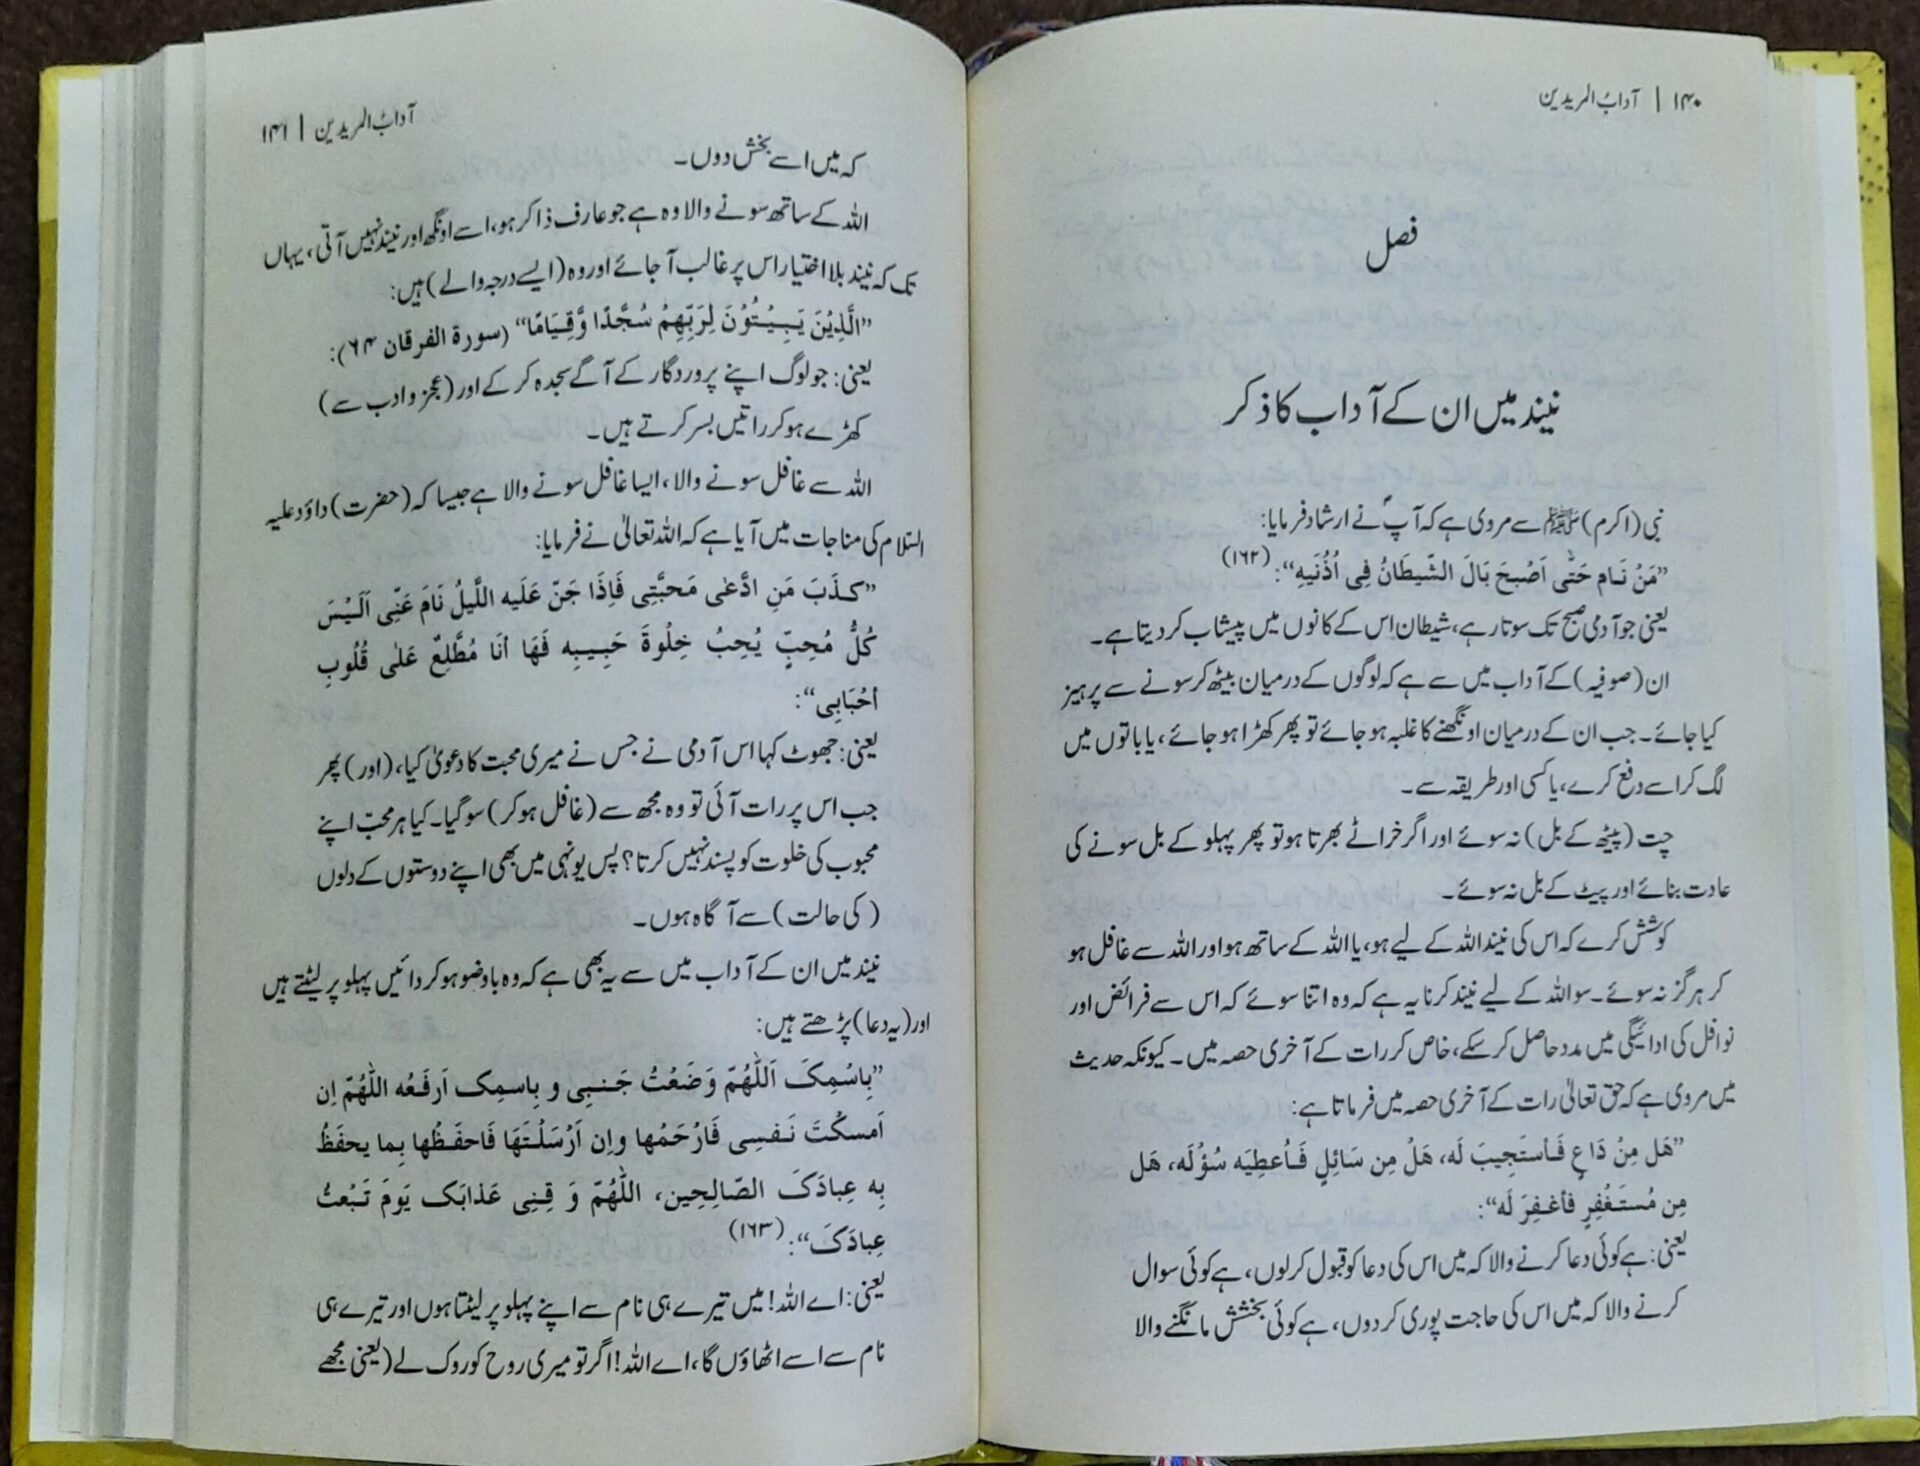 ۱۴۰ | آدابُ المریدین
فصل
نیند میں ان کے آداب کا ذکر
نبی (اکرم) ﷺ سے مروی ہے کہ آپؐ نے ارشاد فرمایا:
”مَنْ نَـام حَتّٰی اَصْبحَ بَالَ الشّیطَانُ فِی اُذُنَیهِ“: (۱۶۲)
یعنی جو آدمی صبح تک سوتا رہے، شیطان اس کے کانوں میں پیشاب کر دیتا ہے۔
ان (صوفیہ) کے آداب میں سے ہے کہ لوگوں کے درمیان بیٹھ کر سونے سے پرہیز
کیا جائے۔ جب ان کے درمیان اونگھنے کا غلبہ ہو جائے تو پھر کھڑا ہو جائے، یا باتوں میں
لگ کر اسے دفع کرے، یا کسی اور طریقہ سے۔
چت (پیٹھ کے بل) نہ سوئے اور اگر خراٹے بھرتا ہو تو پھر پہلو کے بل سونے کی
عادت بنائے اور پیٹ کے بل نہ سوئے۔
کوشش کرے کہ اس کی نیند اللہ کے لیے ہو، یا اللہ کے ساتھ ہو اور اللہ سے غافل ہو
کر ہرگز نہ سوئے۔ سو اللہ کے لیے نیند کرنا یہ ہے کہ وہ اتنا سوئے کہ اس سے فرائض اور
نوافل کی ادائیگی میں مدد حاصل کر سکے، خاص کر رات کے آخری حصہ میں۔ کیونکہ حدیث
میں مروی ہے کہ حق تعالیٰ رات کے آخری حصہ میں فرماتا ہے:
”هَل مِنْ دَاعٍ فَـأستَجِیبَ لَه، هَلْ مِن سَائِلٍ فَـأُعطِیَه سُؤْلَه، هَل
مِن مُستَغْفِرٍ فأغفِرَ لَه“:
یعنی: ہے کوئی دعا کرنے والا کہ میں اس کی دعا کو قبول کرلوں، ہے کوئی سوال
کرنے والا کہ میں اس کی حاجت پوری کردوں، ہے کوئی بخشش مانگنے والا
آدابُ المریدین | ۱۴۱
کہ میں اسے بخش دوں۔
اللہ کے ساتھ سونے والا وہ ہے جو عارف ذاکر ہو، اسے اونگھ اور نیند نہیں آتی، یہاں
تک کہ نیند بلا اختیار اس پر غالب آ جائے اور وہ (ایسے درجہ والے) ہیں:
”الَّذِیْنَ یَـبِـیْـتُوْنَ لِرَبِّهِمْ سُجَّدًا وَّقِـیَامًا“ (سورة الفرقان ۶۴):
یعنی: جو لوگ اپنے پروردگار کے آگے سجدہ کر کے اور (عجز و ادب سے)
کھڑے ہو کر راتیں بسر کرتے ہیں۔
اللہ سے غافل سونے والا، ایسا غافل سونے والا ہے جیسا کہ (حضرت) داؤد علیہ
السّلام کی مناجات میں آیا ہے کہ اللہ تعالیٰ نے فرمایا:
”کـذَبَ مَنِ ادَّعٰی مَحَبَّتِی فَاِذَا جَنّ عَلَیه اللَّیلُ نَامَ عَنِّی اَلَـیْـسَ
کُلُّ مُحِبٍّ یُحِبُّ خِلْوةَ حَبِـیـبِه فَهَا اَنَا مُطَّلِعٌ عَلٰی قُلُوبِ
أحْبَابِی“:
یعنی: جھوٹ کہا اس آدمی نے جس نے میری محبت کا دعویٰ کیا، (اور) پھر
جب اس پر رات آئی تو وہ مجھ سے (غافل ہوکر) سو گیا۔ کیا ہر محبّ اپنے
محبوب کی خلوت کو پسند نہیں کرتا؟ پس یونہی میں بھی اپنے دوستوں کے دلوں
(کی حالت) سے آگاہ ہوں۔
نیند میں ان کے آداب میں سے یہ بھی ہے کہ وہ باوضو ہو کر دائیں پہلو پر لیٹتے ہیں
اور (یہ دعا) پڑھتے ہیں:
”بِاسْمِکَ اَللّٰهُمّ وَضَعْتُ جَـنـبِی و بِاسمِک اَرفَـعُه اللّٰهُمّ اِن
اَمسکْتَ نَـفسِی فَارْحَمْها واِن اَرْسَلْـتَهَا فَاحفَـظْها بِما یحفَظُ
بِه عِبادَکَ الصّالِحِین، اللّٰهُمّ وَ قِـنِی عَذابَک یَومَ تَـبْعثُ
عِبادَکَ“: (۱۶۳)
یعنی: اے اللہ! میں تیرے ہی نام سے اپنے پہلو پر لیٹتا ہوں اور تیرے ہی
نام سے اسے اٹھاؤں گا، اے اللہ! اگر تو میری روح کو روک لے (یعنی مجھے